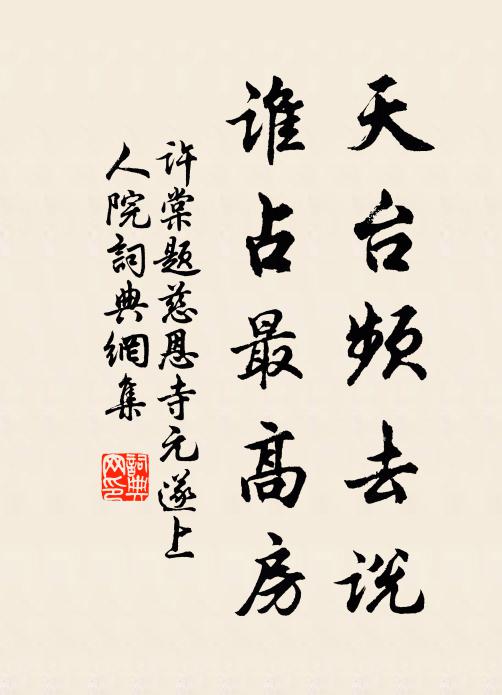 天台频去说
谁占最高房
许棠题慈恩寺元遂上
人院词典網集
詞典網印